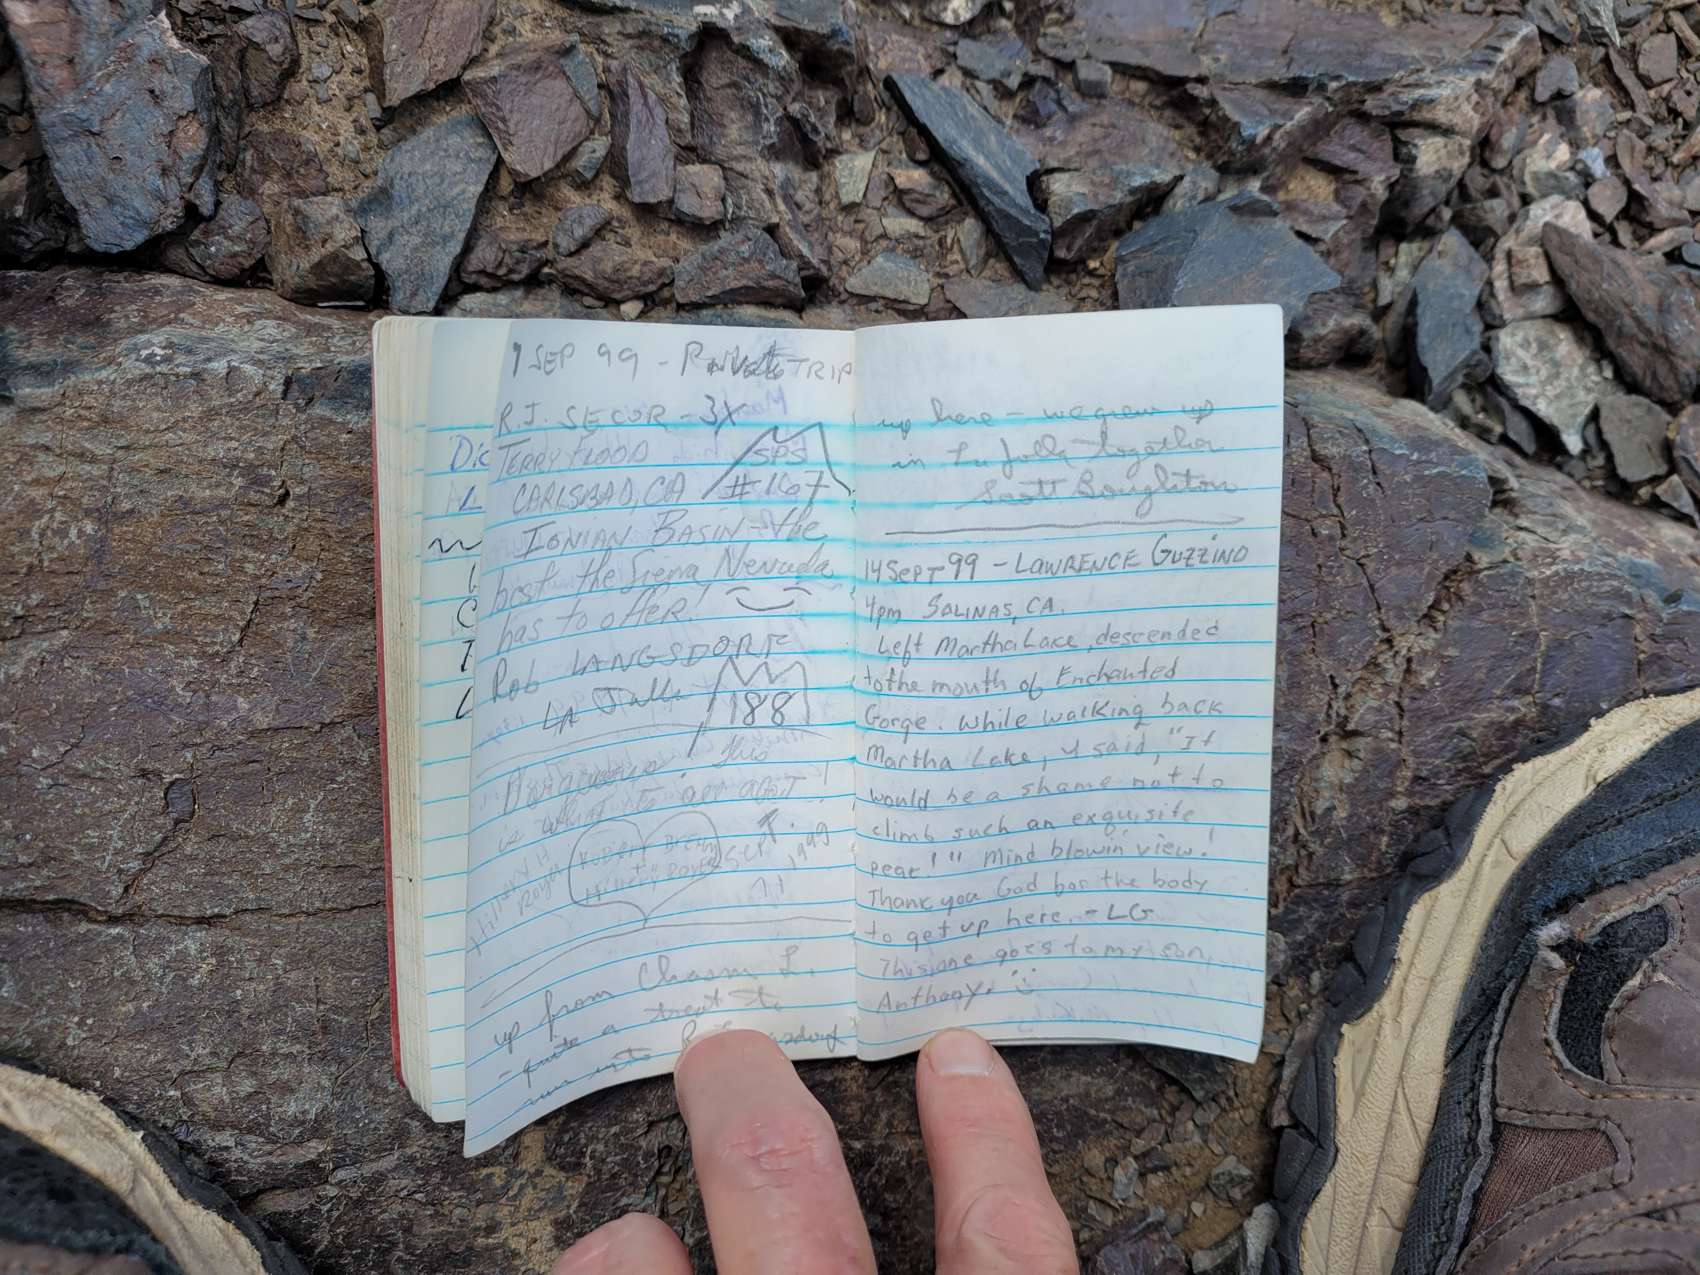 1 SEP 99 - PRIVATE TRIP
R.J. SECOR - 3X
TERRY FLOOD
SPS
CARLSBAD, CA
#167
IONIAN BASIN - the
best the Sierra Nevada
has to offer!
Rob LANGSDORF
LA Jolla
188
this
is what it's all about!
Hillary Royer
Sept.
1999
up from Chasm L.
- quite a treat to
up here - we grew up
together
Scott Boughton
14 SEPT 99 - LAWRENCE GUZZINO
4pm SALINAS, CA.
Left Martha Lake, descended
to the mouth of Enchanted
Gorge. While walking back
Martha Lake, I said, "It
would be a shame not to
climb such an exquisite
peak!" Mind blowin' view!
Thank you God for the body
to get up here. - LG
This one goes to my son,
Anthony.